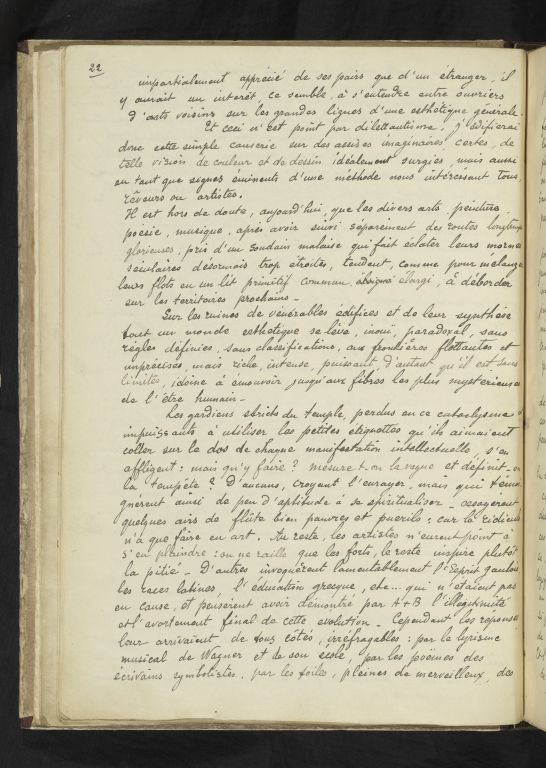 22
impartialement apprécié de ses pairs que d'un étranger, il
y aurait un intérêt ce semble, à s'entendre entre ouvriers
d'arts voisins sur les grandes lignes d'une esthétique générale.
Et ceci n'est point par dilettantisme ; j'édifierai
donc cette simple causerie sur des assises imaginaires, certes, de
telle vision de couleur et de dessin idéalement surgies, mais aussi
en tant que signes éminents d'une méthode nous intéressant tous,
rêveurs ou artistes.
Il est hors de doute, aujourd'hui, que les divers arts, peinture
poésie, musique, après avoir suivi séparément des routes longtemps
glorieuses, pris d'un soudain malaise qui fait éclater leurs mornes
séculaires désormais trop étroites, tendent, comme pour mélanger
leurs flots en un lit primitif commun, élargi, à déborder
sur les territoires prochains _
Sur les ruines de vénérables édifices et de leur synthèse
tout un monde esthétique se lève, inouï, paradoxal, sans
règles définies, sans classifications, aux frontières flottantes et
imprécises, mais riche, intense, puissant, d'autant qu'il est sans
limites, idoine à émouvoir jusqu'aux fibres les plus mystérieuses
de l'être humain _
Les gardiens stricts du temple, perdus en ce cataclysme
impuissants à utiliser les petites étiquettes qu'ils aimaient
coller sur le dos de chaque manifestation intellectuelle, s'en
affligent : mais qu'y faire ? mesure-t-on la vague et définit-on
la tempête ? D'aucuns, croyant l'enrayer _ mais qui témoi-
gnèrent ainsi de peu d'aptitude à se spiritualiser _ essayèrent
quelques airs de flûte bien pauvres et puérils ; car le ridicule
n'a que faire en art. Au reste, les artistes n'eurent point à
s'en plaindre : on ne raille que les forts, le reste inspire plutôt
la pitié _ D'autres invoquèrent lamentablement l'Esprit gaulois
les races latines, l'éducation grecque, etc... qui n'étaient pas
en cause, et pensèrent avoir démontré par A+B l'illégitimité
et l'avortement final de cette évolution _ Cependant les réponses
leur arrivaient de tous côtés, irréfragables : par le lyrisme
musical de Wagner et de son école, par les poèmes des
écrivains symbolistes, par les toiles, pleines de merveilleux, des